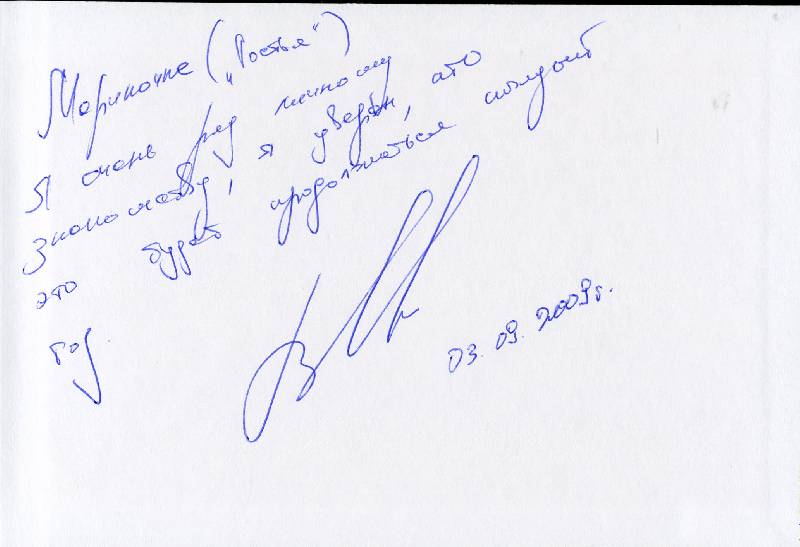 Мариночке („Ростья“)
Я очень рад личному
знакомству, я уверен, что
это будет продолжаться каждый
год
03.09.2009г.